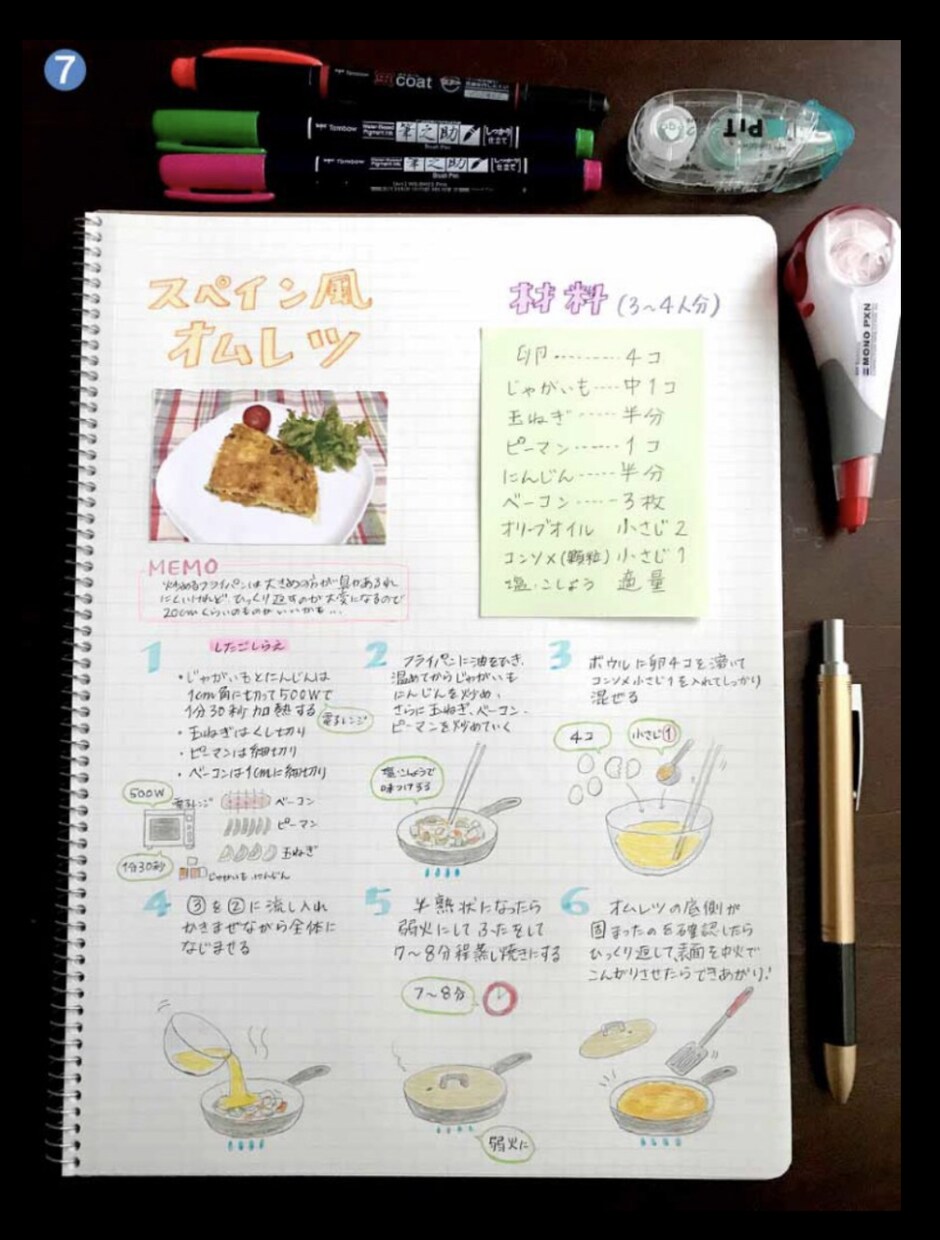 7
coat
Tombow
筆之助
しっかり仕立て
Brush Pen
Tombow
筆之助
しっかり仕立て
Brush Pen
PiT
MONO PXN
スペイン風
オムレツ
材料(3~4人分)
卵………4コ
じゃがいも……中1コ
玉ねぎ……半分
ピーマン……1コ
にんじん……半分
ベーコン……3枚
オリーブオイル 小さじ2
コンソメ(顆粒)小さじ1
塩・こしょう 適量
MEMO
炒めるフライパンは大きめの方が具があふれ
にくいけれど、ひっくり返すのが大変になるので
20cmくらいのものがいいかも…
1 したごしらえ
・じゃがいもとにんじんは
1cm角に切って500Wで
1分30秒加熱する
電子レンジ
・玉ねぎはくし切り
・ピーマンは細切り
・ベーコンは1cmに細切り
500W
電子レンジ
1分30秒
ベーコン
ピーマン
玉ねぎ
じゃがいも、にんじん
2 フライパンに油をひき、
温めてからじゃがいも
にんじんを炒め、
さらに玉ねぎ、ベーコン、
ピーマンを炒めていく
塩・こしょうで
味つけする
3 ボウルに卵4コを溶いて
コンソメ小さじ1を入れてしっかり
混ぜる
4コ
小さじ①
4 ③を②に流し入れ
かきまぜながら全体に
なじませる
5 半熟状になったら
弱火にしてふたをして
7~8分程蒸し焼きにする
7~8分
弱火に
6 オムレツの底側が
固まったのを確認したら
ひっくり返して、表面を中火で
こんがりさせたらできあがり!